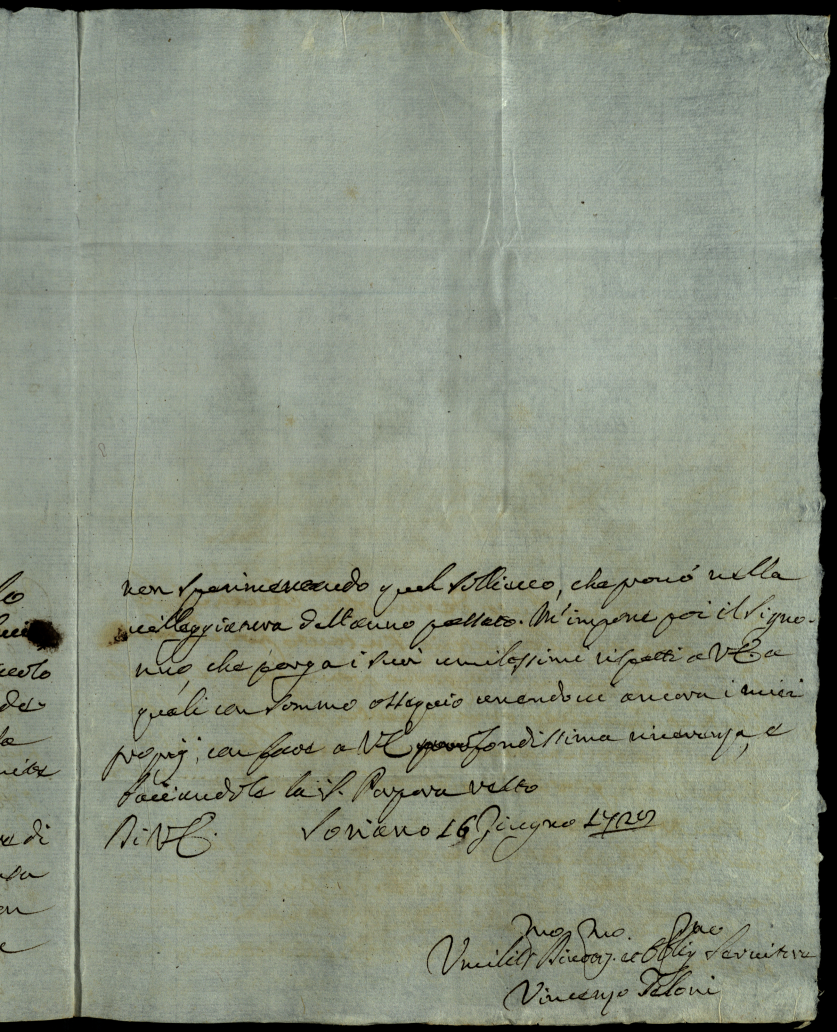 lo
ccolo
de-
la
ve di
non sperimentando quel sollievo, che provò nella
villeggiatura dell'anno passato. M'impone poi il Signo-
rino, che porga i suoi umilissimi rispetti a V.E. a
quali con sommo ossequio unendoci ancora i miei
proprij, con fare a V.E. profondissima riverenza, e
baciandole la S. Porpora resto
Di V.E. Soriano 16 Giugno 1720
Umilis.mo Divotis.mo et Oblig.mo Servitore
Vincenzo Teloni